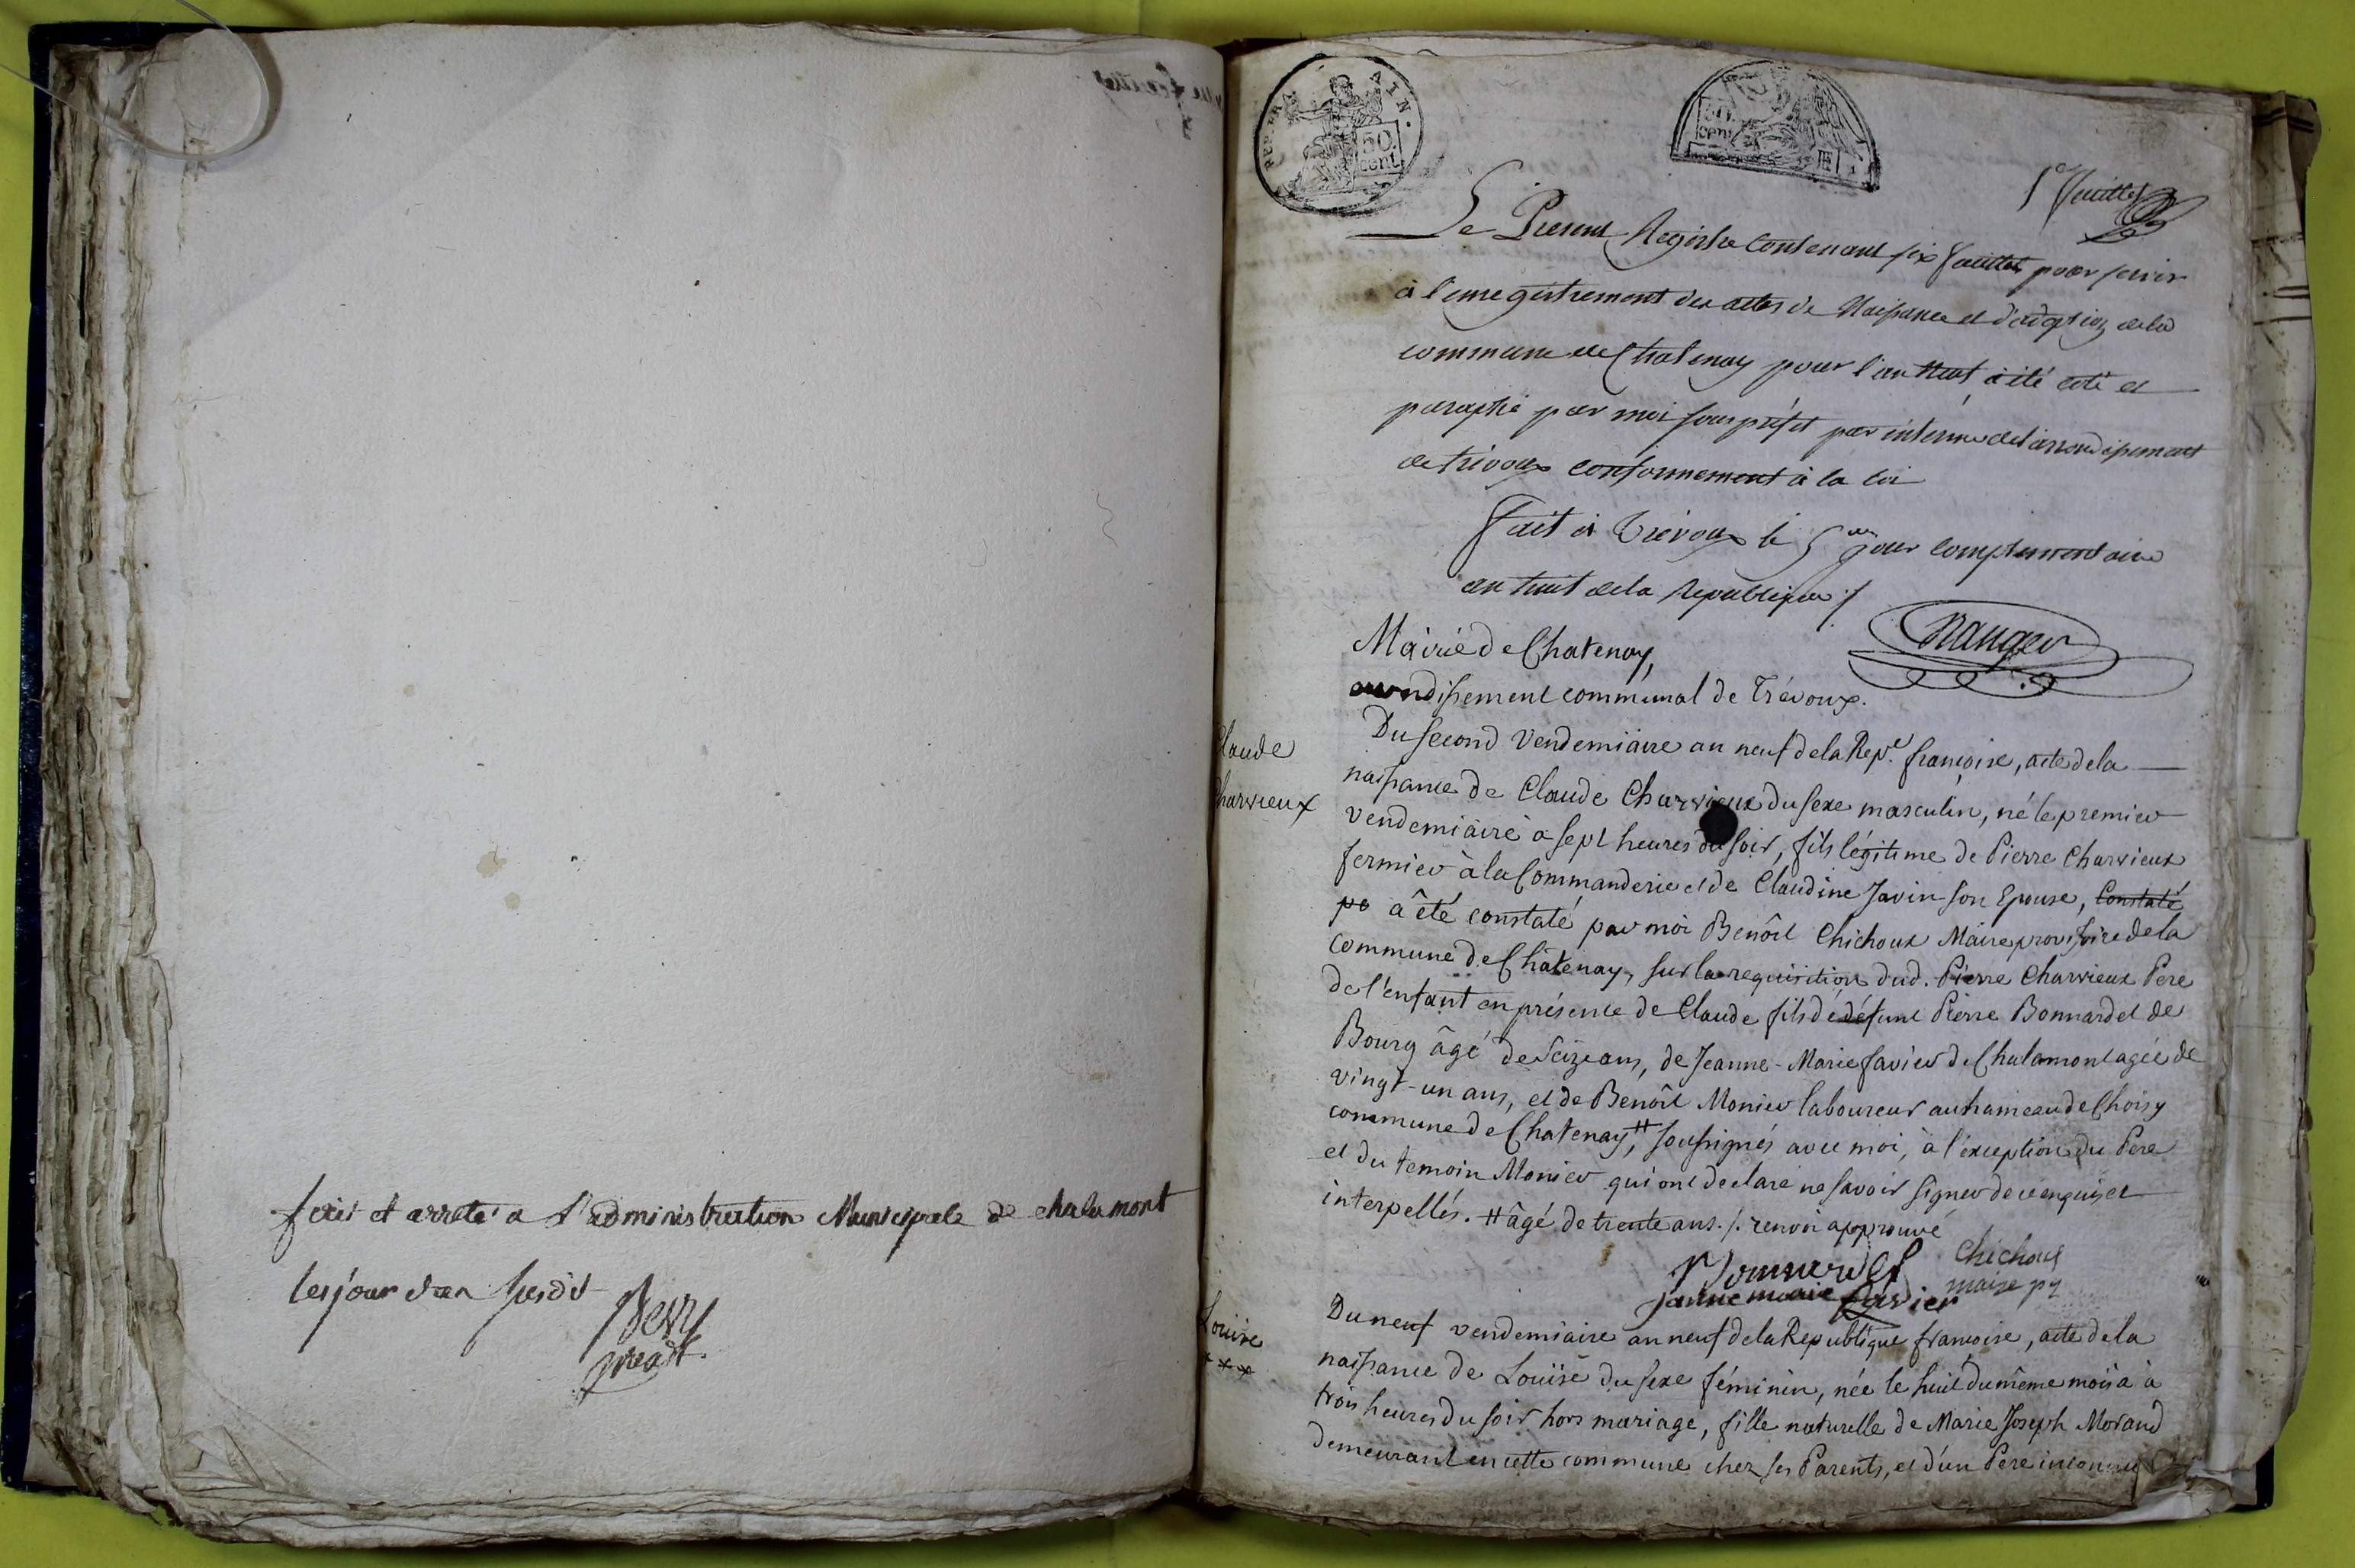 fait et arreté a l'administration Municipale de chalamont
les jour et an susdit
REP. FRA
AIN.
50.
cent.
50.
cent.
1er feuillet
Le Present Registre contenant six feuillets pour servir
à l'enregistrement des actes de Naissance et d'adoption de la
commune de Chatenay pour l'an neuf, à été coté et
paraphé par moi sous préfet par interim de l'arrondissement
de trévoux conformement à la loi
fait à Trévoux le 5me jour complementaire
an huit de la Republique ./.
Mairie de Chatenay,
arrondissement communal de Trévoux.
Claude
Charvieux
Du second Vendemiaire an neuf de la Repe. françoise, acte de la
naissance de Claude Charvieux du sexe masculin, né le premier
vendemiaire à sept heures du soir, fils légitime de Pierre Charvieux
fermier à la Commanderie et de Claudine Javin son Epouse, Constaté
pa à été constaté par moi Benôit Chichoux Maire provisoire de la
commune de Châtenay, sur la requisition dud. Pierre Charvieux Pere
de l'enfant en présence de Claude fils de défunt Pierre Bonnardel de
Bourg âgé de seize ans, de Jeanne-Marie Favier de Chalamont agée de
vingt-un ans, et de Benôit Monier laboureur au hameau de Choisy
commune de Chatenay, # soussignés avec moi, à l'exception du Pere
et du temoin Monier qui ont declaré ne savoir signer de ce enquis et
interpellés. # âgé de trente ans. /. renvoi approuvé
Bonnardel
Chichoux
maire pr
janne marie favier
Louise
x x x
Du neuf vendemiaire an neuf de la Republique françoise, acte de la
naissance de Louise du sexe féminin, née le huit du même mois à à
trois heures du soir hors mariage, fille naturelle de Marie Joseph Morand
demeurant en cette commune chez ses Parents, et d'un Pere inconnu